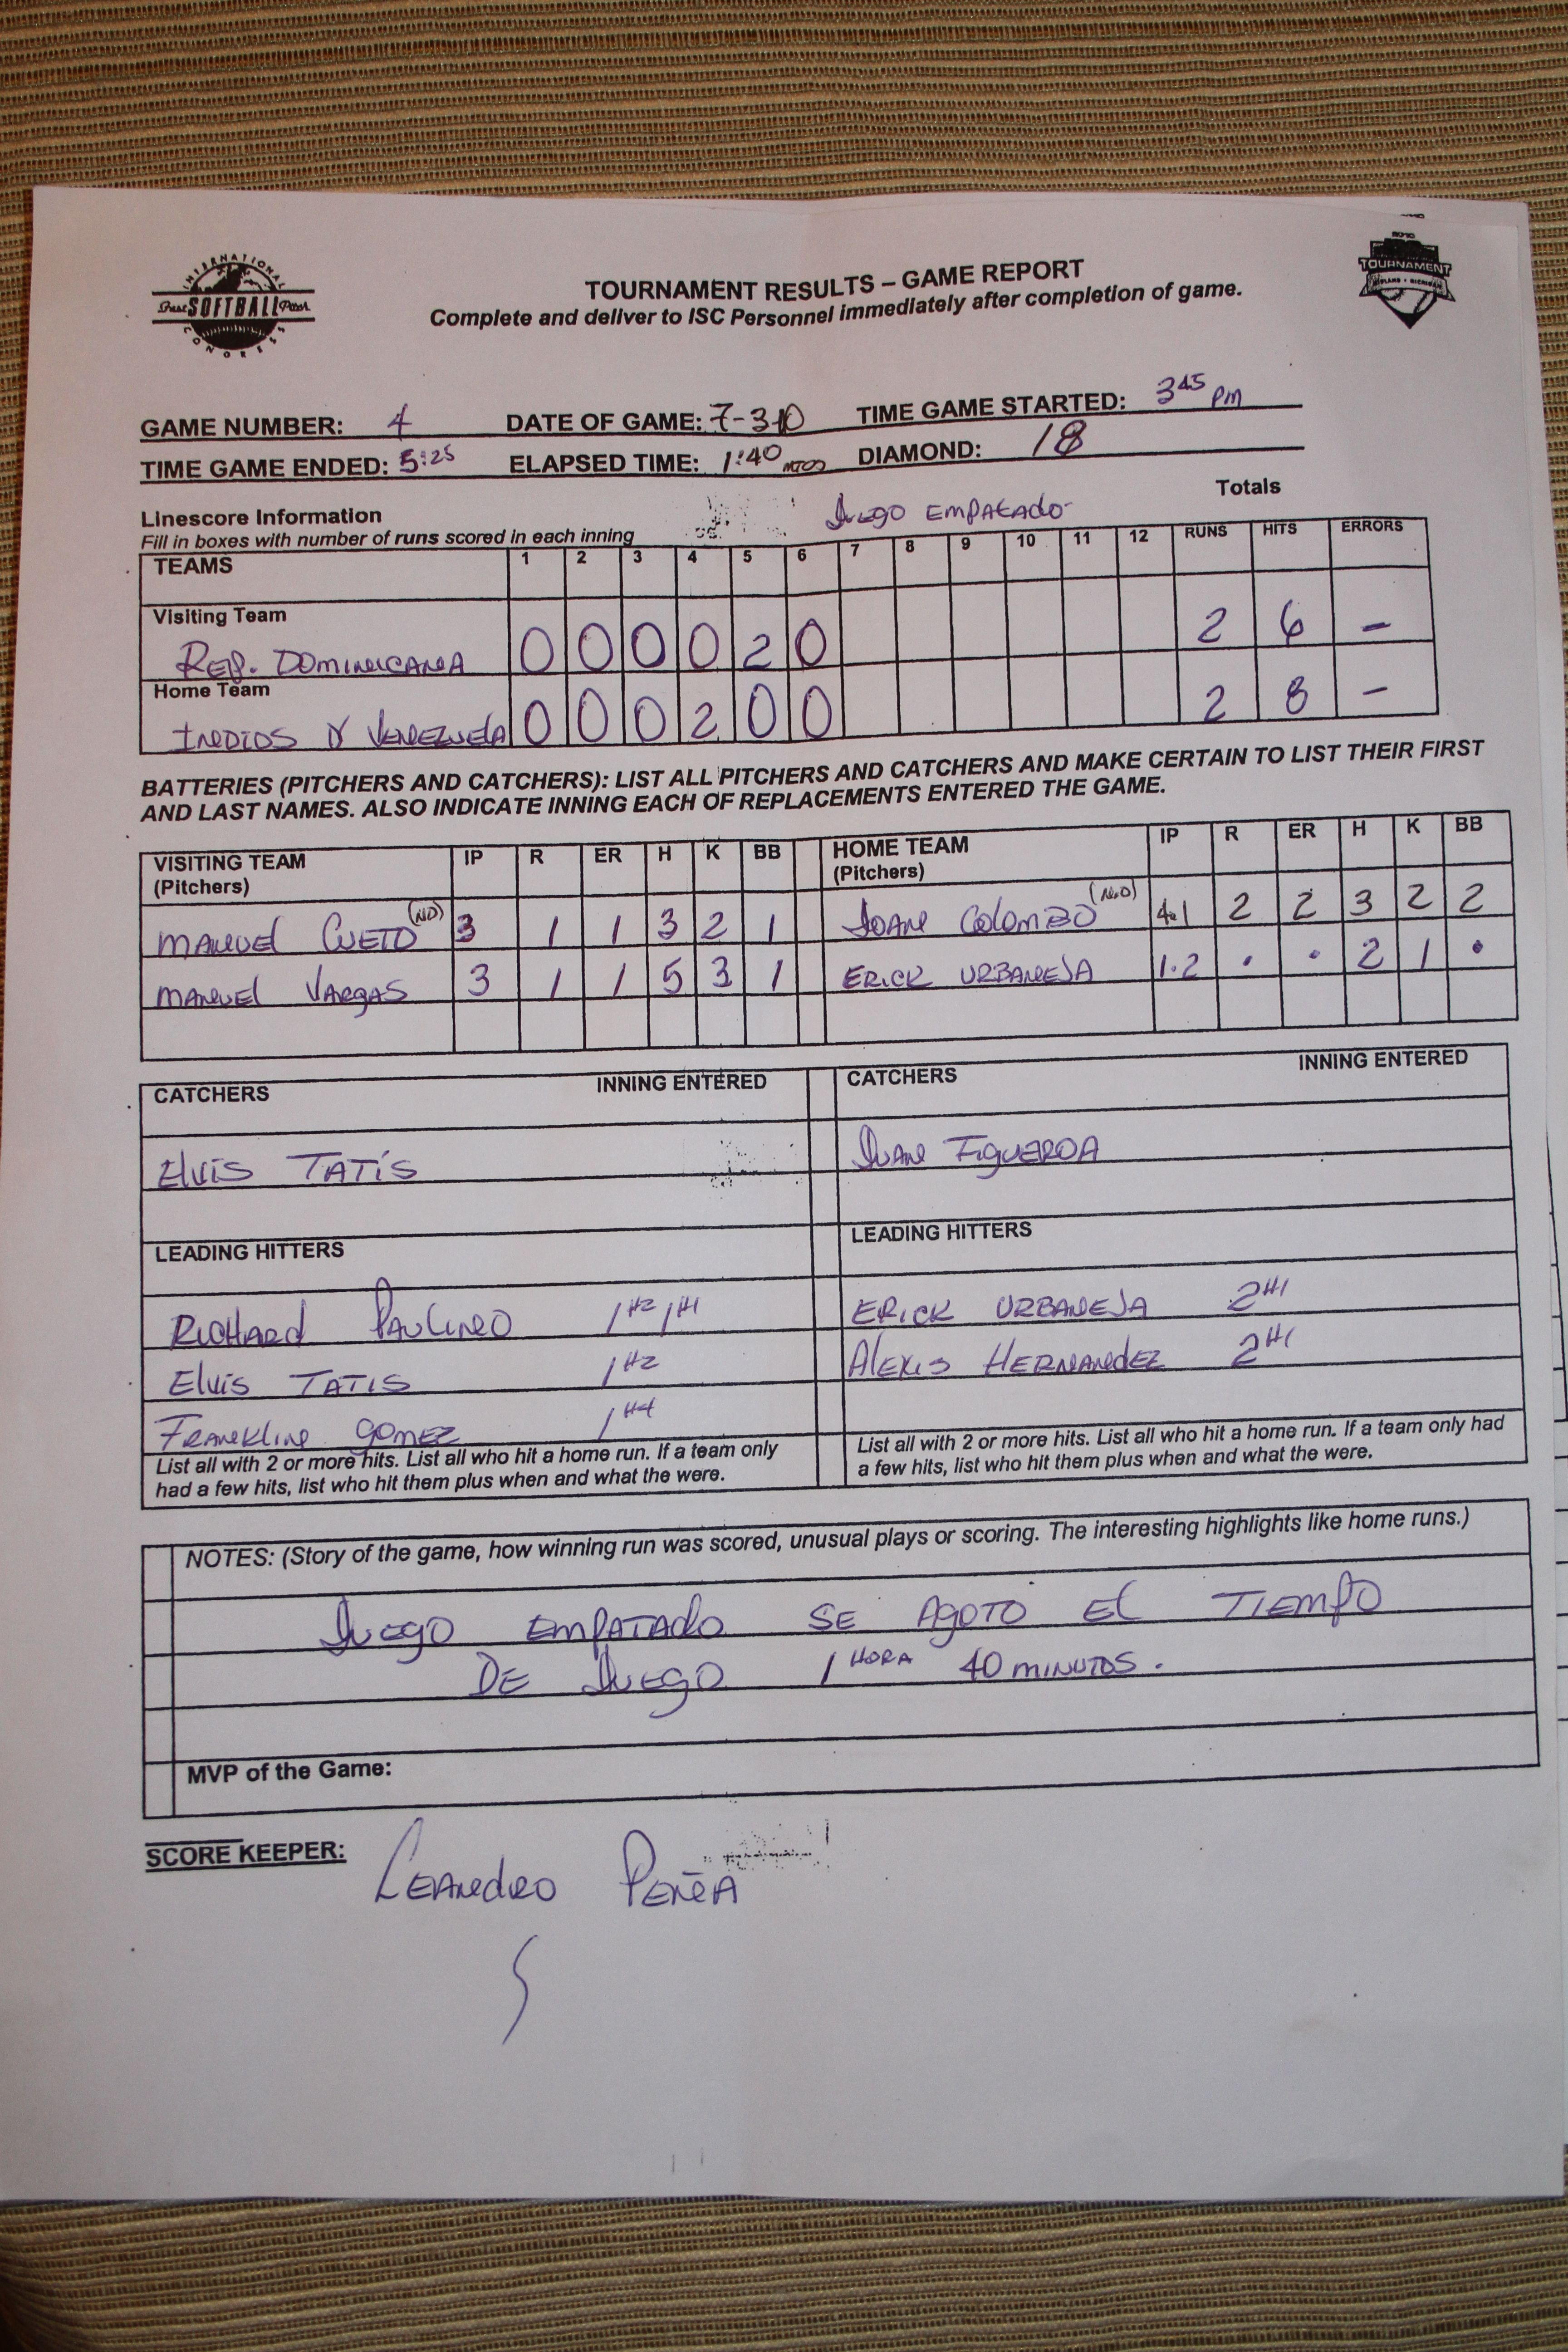 INTERNATIONAL
Fast SOFTBALL Pitch
CONGRESS
TOURNAMENT
TOURNAMENT RESULTS – GAME REPORT
Complete and deliver to ISC Personnel immediately after completion of game.
GAME NUMBER: 4 DATE OF GAME: 7-3-10 TIME GAME STARTED: 3 45 PM
TIME GAME ENDED: 5:25 ELAPSED TIME: 1:40 MTOS DIAMOND: 18
Linescore Information JUEGO EMPATADO Totals
Fill in boxes with number of runs scored in each inning
TEAMS 1 2 3 4 5 6 7 8 9 10 11 12 RUNS HITS ERRORS
Visiting Team
REP. DOMINICANA 0 0 0 0 2 0 2 6 –
Home Team
INDIOS D VENEZUELA 0 0 0 2 0 0 2 8 –
BATTERIES (PITCHERS AND CATCHERS): LIST ALL PITCHERS AND CATCHERS AND MAKE CERTAIN TO LIST THEIR FIRST
AND LAST NAMES. ALSO INDICATE INNING EACH OF REPLACEMENTS ENTERED THE GAME.
VISITING TEAM IP R ER H K BB HOME TEAM IP R ER H K BB
(Pitchers) (Pitchers)
MANUEL CUETO (ND) 3 1 1 3 2 1 JOAN COLOMBO (N.D) 4.1 2 2 3 2 2
MANUEL VARGAS 3 1 1 5 3 1 ERICK URBANEJA 1.2 • • 2 1 •
CATCHERS INNING ENTERED CATCHERS INNING ENTERED
ELVIS TATÍS JUAN FIGUEROA
LEADING HITTERS LEADING HITTERS
RICHARD PAULINO 1 H2 1 H1 ERICK URBANEJA 2 H1
ELVIS TATIS 1 H2 ALEXIS HERNANDEZ 2 H1
FRANKLIN GOMEZ 1 H4
List all with 2 or more hits. List all who hit a home run. If a team only
had a few hits, list who hit them plus when and what the were.
List all with 2 or more hits. List all who hit a home run. If a team only had
a few hits, list who hit them plus when and what the were.
NOTES: (Story of the game, how winning run was scored, unusual plays or scoring. The interesting highlights like home runs.)
JUEGO EMPATADO SE AGOTO EL TIEMPO
DE JUEGO 1 HORA 40 MINUTOS.
MVP of the Game:
SCORE KEEPER: LEANDRO PEÑA